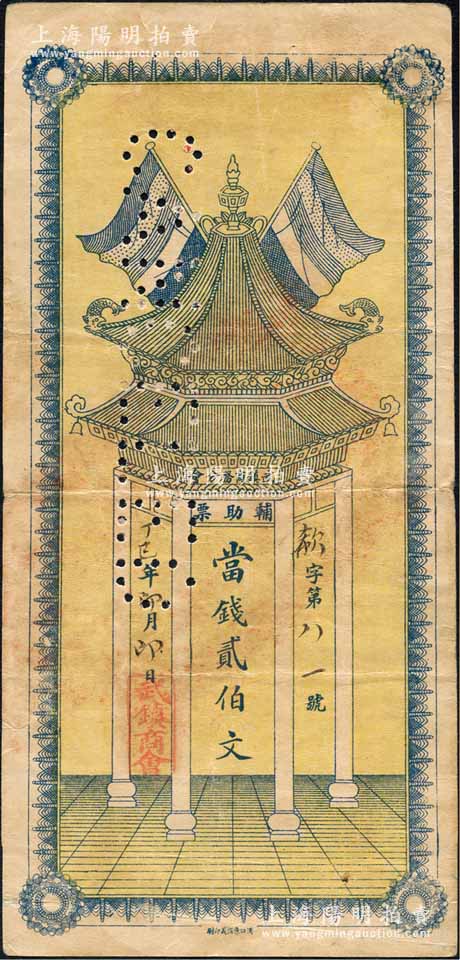 上海陽明拍賣
www.yangmingauction.com
輔助票
款字第八一號
當錢貳伯文
丁巳年 月 日
武鎮商會
上海陽明拍賣
www.yangmingauction.com
上海陽明拍賣
www.yangmingauction.com